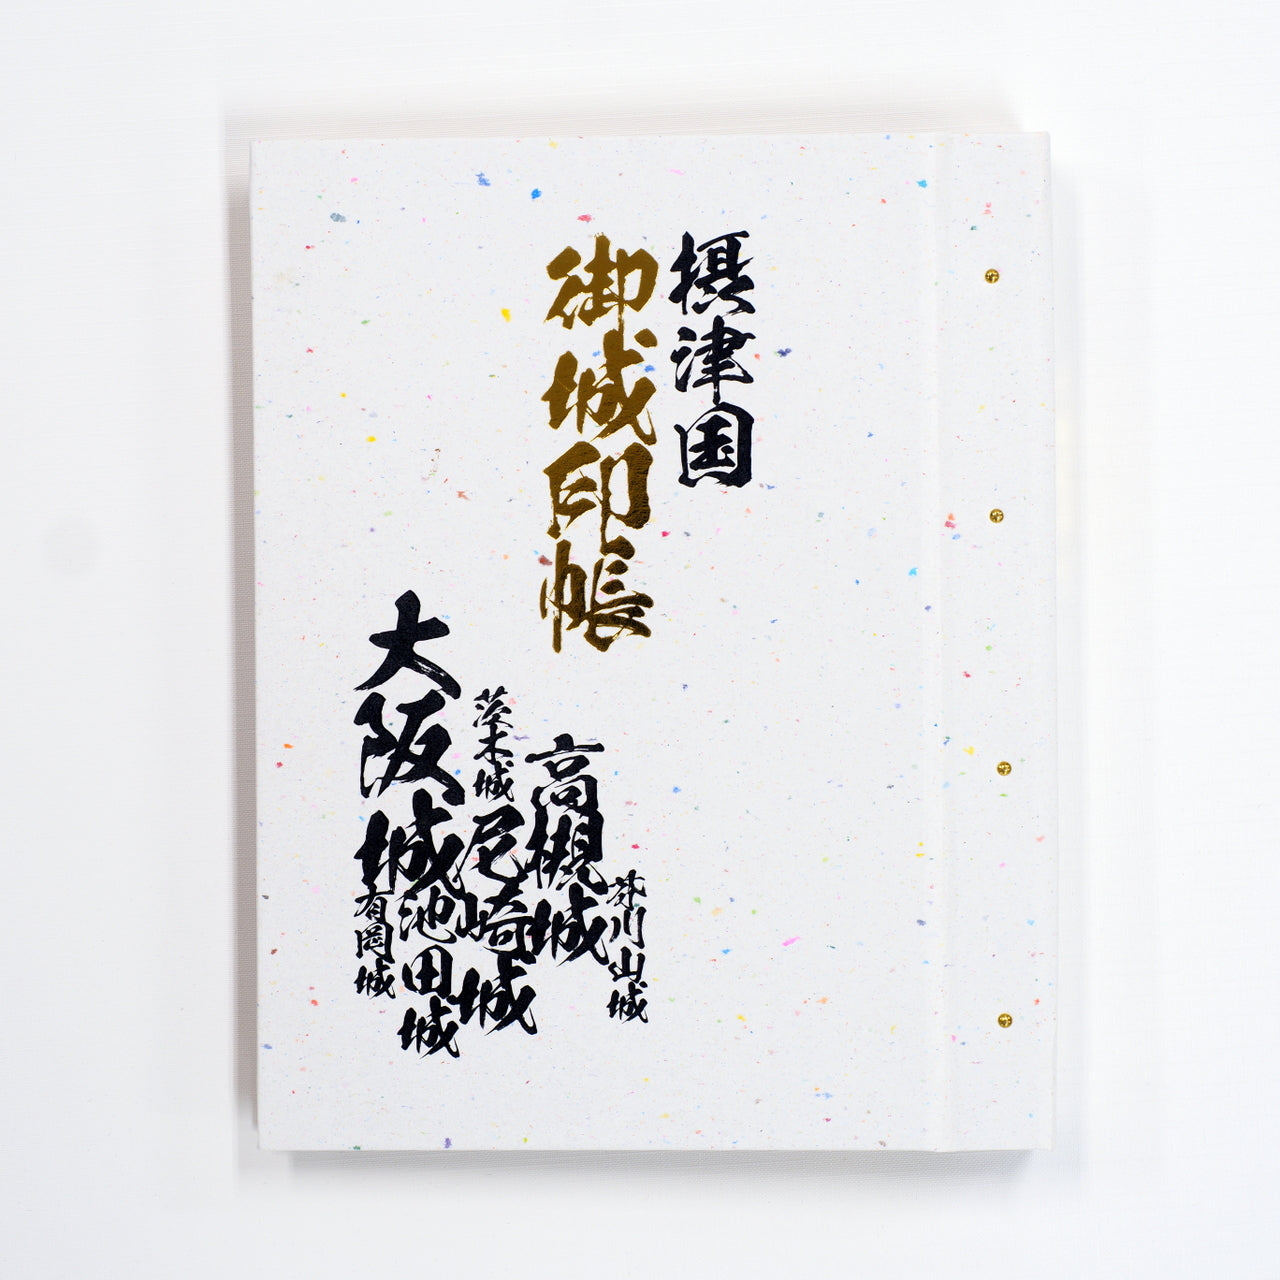 摂津国
御城印帳
芥川山城
高槻城
茨木城
尼崎城
大阪城
池田城
有岡城